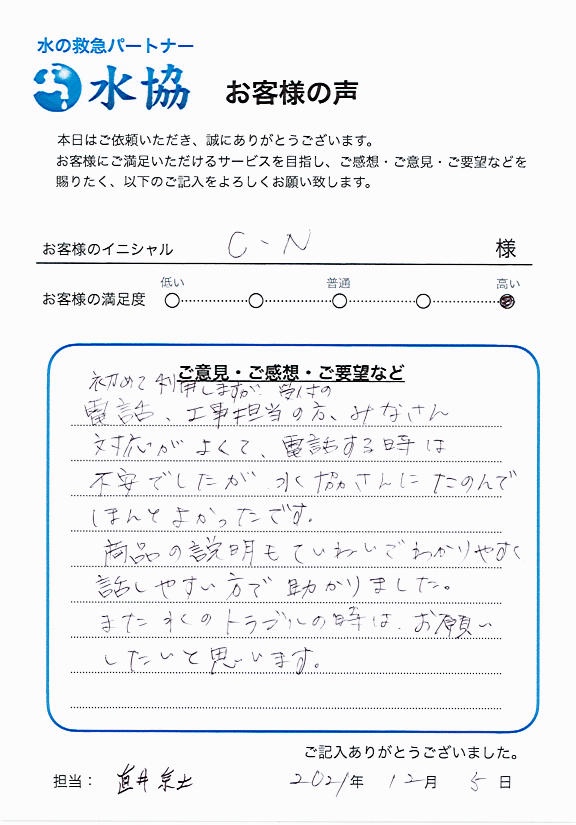 水の救急パートナー
水協 お客様の声
本日はご依頼いただき、誠にありがとうございます。
お客様にご満足いただけるサービスを目指し、ご感想・ご意見・ご要望などを
賜りたく、以下のご記入をよろしくお願い致します。
お客様のイニシャル C-N 様
低い 普通 高い
お客様の満足度
ご意見・ご感想・ご要望など
初めて利用しますが、受付の
電話、工事担当の方、みなさん
対応がよくて、電話する時は
不安でしたが水協さんにたのんで
ほんとよかったです。
商品の説明もていねいでわかりやすく
話しやすい方で助かりました。
また水のトラブルの時は、お願い
したいと思います。
ご記入ありがとうございました。
担当： 直井 2021年 12月 5日